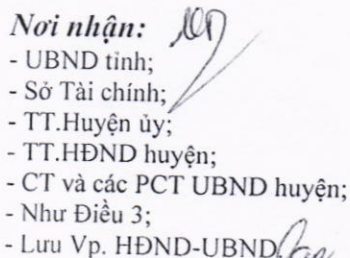 Nơi nhận:
- UBND tỉnh;
- Sở Tài chính;
- TT.Huyện ủy;
- TT.HĐND huyện;
- CT và các PCT UBND huyện;
- Như Điều 3;
- Lưu Vp. HĐND-UBND